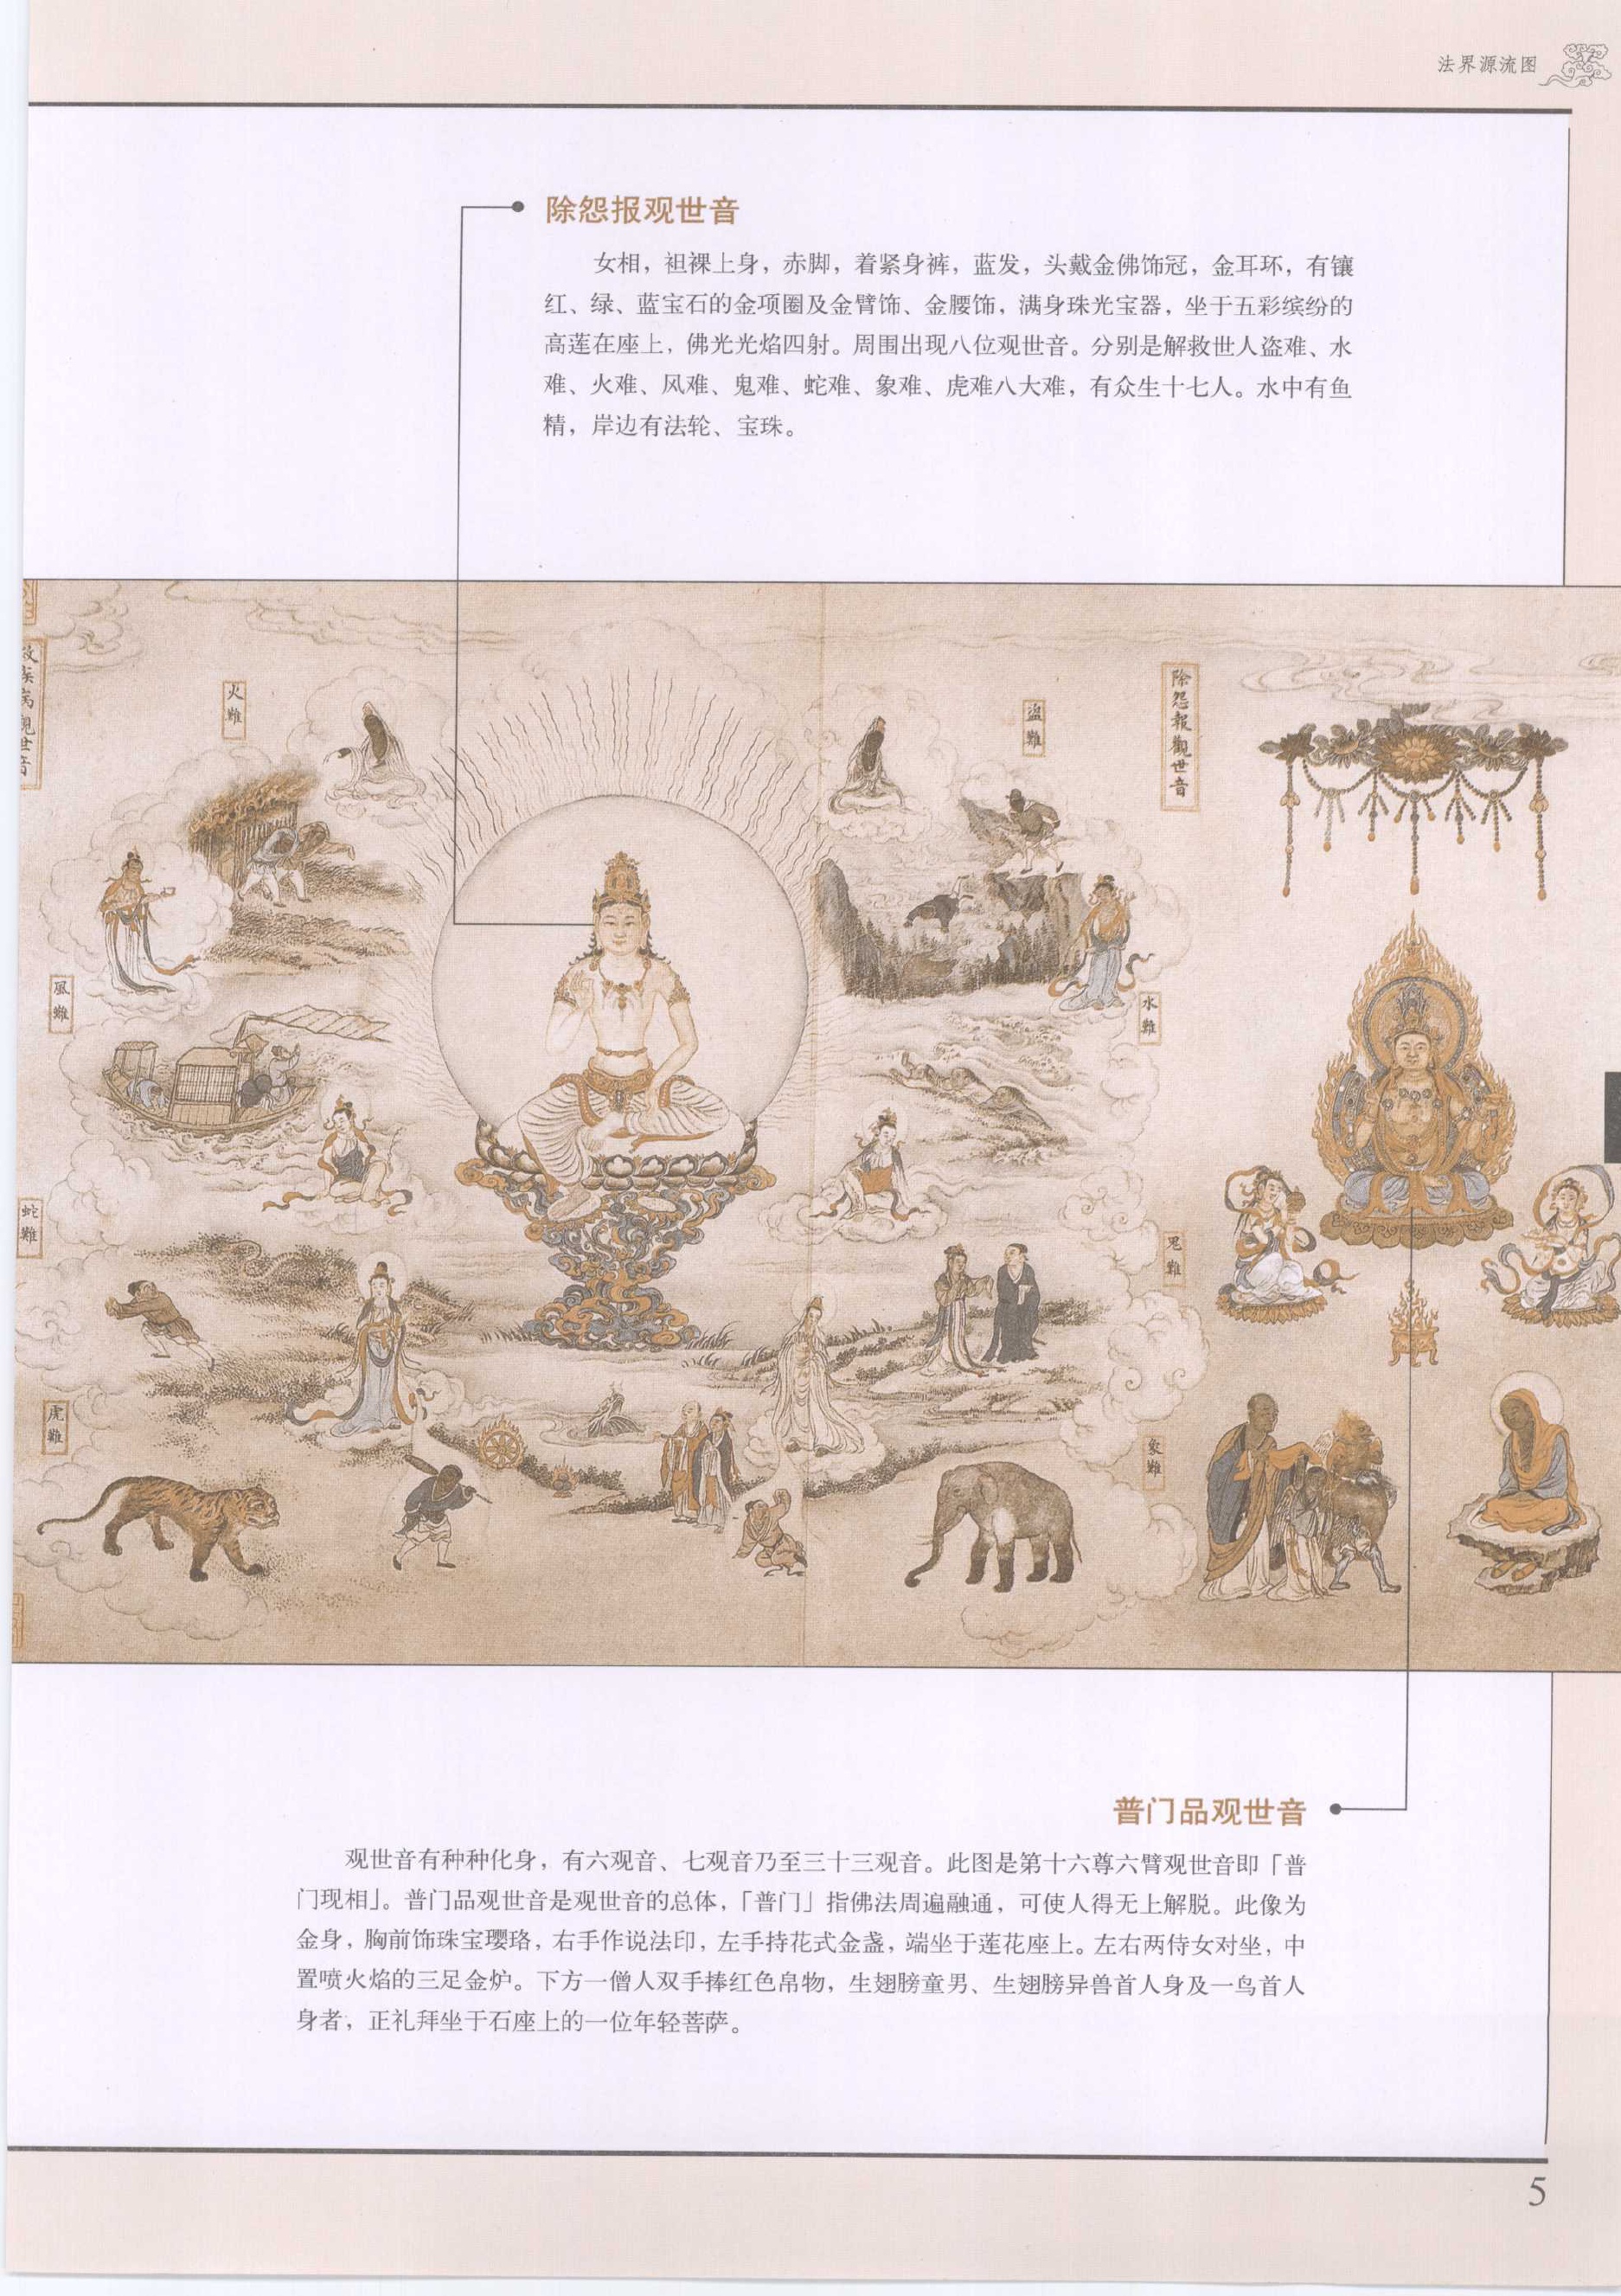 法界源流图
除怨报观世音
女相，袒裸上身，赤脚，着紧身裤，蓝发，头戴金佛饰冠，金耳环，有镶
红、绿、蓝宝石的金项圈及金臂饰、金腰饰，满身珠光宝器，坐于五彩缤纷的
高莲在座上，佛光光焰四射。周围出现八位观世音。分别是解救世人盗难、水
难、火难、风难、鬼难、蛇难、象难、虎难八大难，有众生十七人。水中有鱼
精，岸边有法轮、宝珠。
除怨報觀世音
盜難
火難
疾病觀世音
水難
風難
鬼難
蛇難
象難
虎難
普门品观世音
观世音有种种化身，有六观音、七观音乃至三十三观音。此图是第十六尊六臂观世音即「普
门现相」。普门品观世音是观世音的总体，「普门」指佛法周遍融通，可使人得无上解脱。此像为
金身，胸前饰珠宝璎珞，右手作说法印，左手持花式金盏，端坐于莲花座上。左右两侍女对坐，中
置喷火焰的三足金炉。下方一僧人双手捧红色帛物，生翅膀童男、生翅膀异兽首人身及一鸟首人
身者，正礼拜坐于石座上的一位年轻菩萨。
5